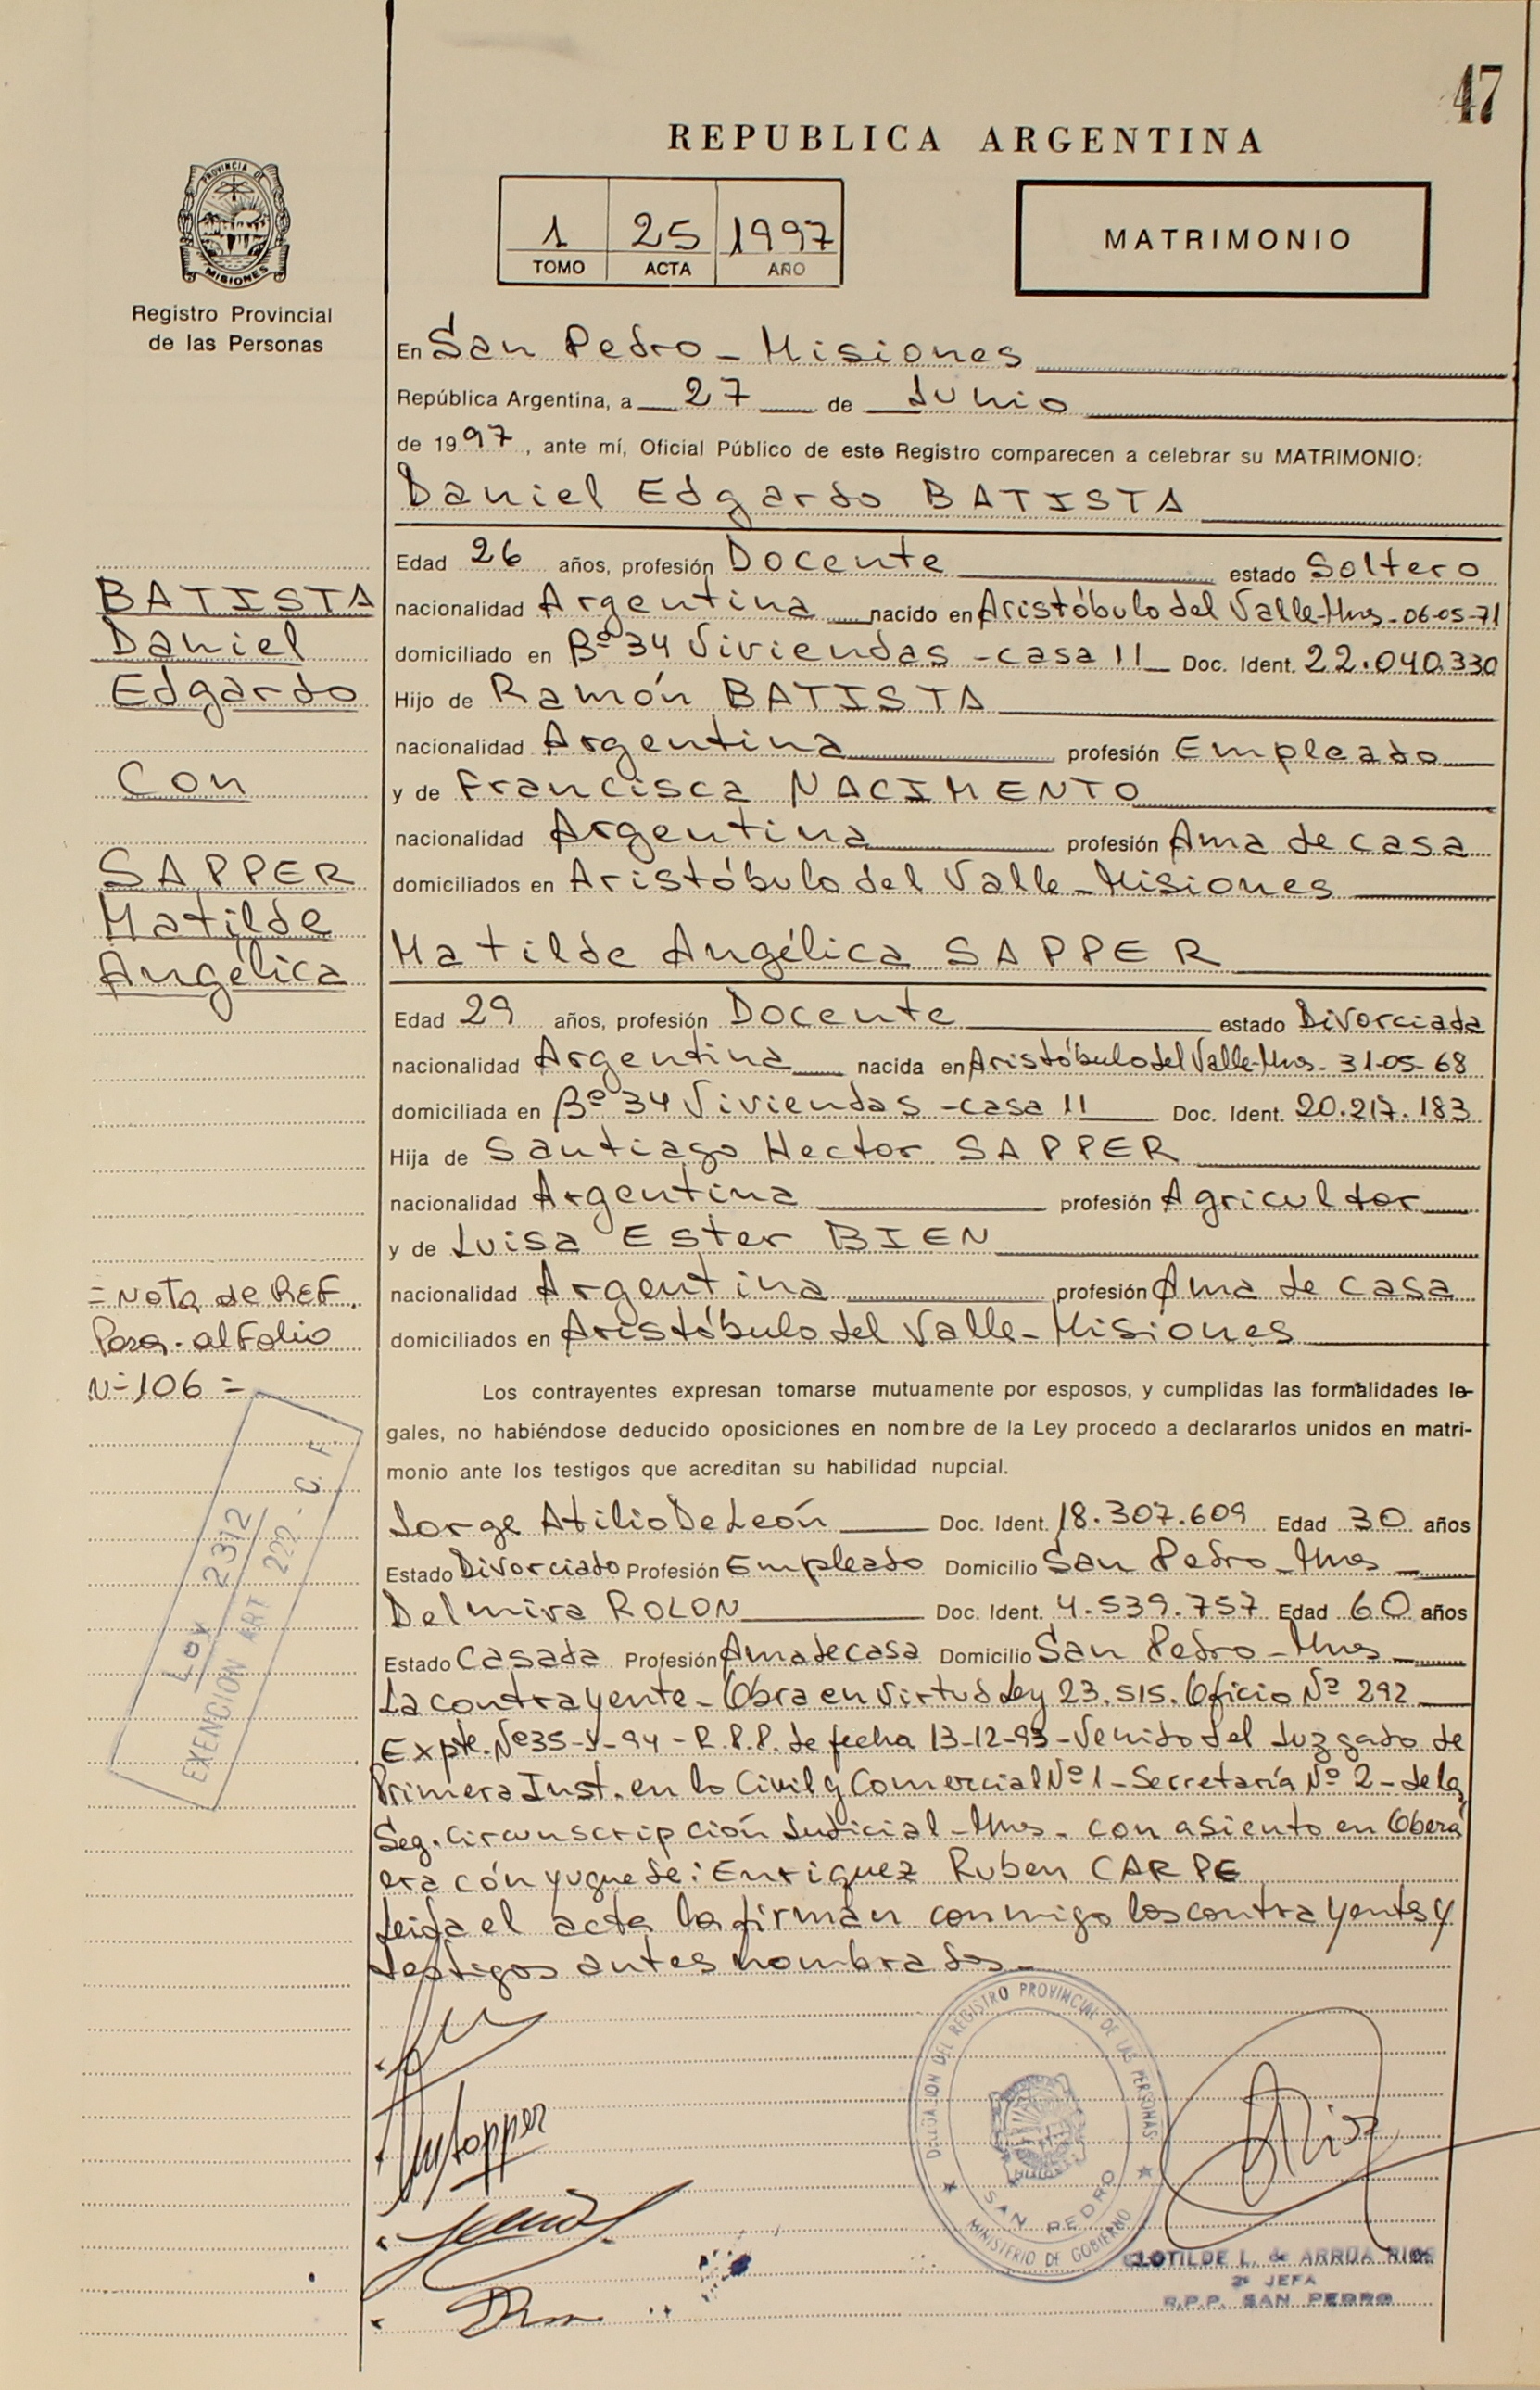 47
REPUBLICA ARGENTINA
PROVINCIA DE
MISIONES
Registro Provincial
de las Personas
1 25 1997
TOMO ACTA AÑO
MATRIMONIO
En San Pedro - Misiones
República Argentina, a 27 de Junio
de 1997, ante mí, Oficial Público de este Registro comparecen a celebrar su MATRIMONIO:
Daniel Edgardo BATISTA
Edad 26 años, profesión Docente estado Soltero
nacionalidad Argentina nacido en Aristóbulo del Valle-Mnes-06-05-71
domiciliado en Bº 34 Viviendas - casa 11 Doc. Ident. 22.040.330
Hijo de Ramón BATISTA
nacionalidad Argentina profesión Empleado
y de Francisca NACIMENTO
nacionalidad Argentina profesión Ama de casa
domiciliados en Aristóbulo del Valle - Misiones
Matilde Angélica SAPPER
Edad 29 años, profesión Docente estado Divorciada
nacionalidad Argentina nacida en Aristóbulo del Valle-Mnes- 31-05-68
domiciliada en Bº 34 Viviendas - casa 11 Doc. Ident. 20.217.183
Hija de Santiago Hector SAPPER
nacionalidad Argentina profesión Agricultor
y de Luisa Ester BIEN
nacionalidad Argentina profesión Ama de casa
domiciliados en Aristóbulo del Valle - Misiones
Los contrayentes expresan tomarse mutuamente por esposos, y cumplidas las formalidades le-
gales, no habiéndose deducido oposiciones en nombre de la Ley procedo a declararlos unidos en matri-
monio ante los testigos que acreditan su habilidad nupcial.
Jorge Atilio De León Doc. Ident. 18.307.609 Edad 30 años
Estado Divorciado Profesión Empleado Domicilio San Pedro - Mnes
Delmira ROLON Doc. Ident. 4.539.757 Edad 60 años
Estado Casada Profesión Ama de casa Domicilio San Pedro - Mnes
La contrayente - Obra en virtud Ley 23.515. Oficio Nº 292
Expte. Nº 35-S-94 - R.P.P. de fecha 13-12-93 - Venido del Juzgado de
Primera Inst. en lo Civil y Comercial Nº 1 - Secretaría Nº 2 - de la
Seg. Circunscripción Judicial - Mnes - con asiento en Oberá
era cónyugue de: Enriquez Ruben CARPE
Leída el acta la firman conmigo los contrayentes y
testigos antes nombrados -
BATISTA
Daniel
Edgardo
Con
SAPPER
Matilde
Angélica
= Nota de REF.
Pasa. al Folio
Nº 106 =
Ley 2372
EXENCION ART 222 - C. F.
MSapper
DELEGACION DEL REGISTRO PROVINCIAL DE LAS PERSONAS
SAN PEDRO
MINISTERIO DE GOBIERNO
CLOTILDE L. de ARRUA RIOS
2ª JEFA
R.P.P. SAN PEDRO